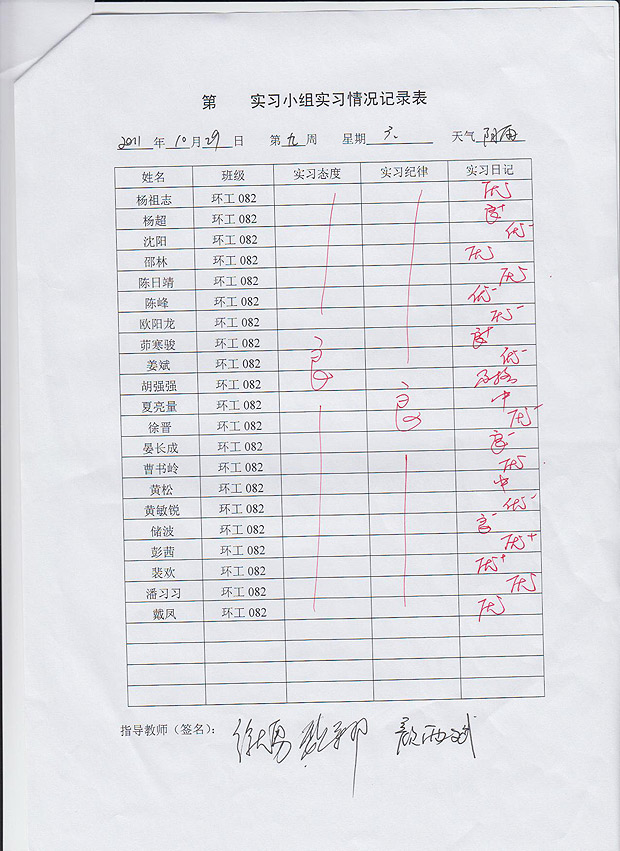 第 实习小组实习情况记录表
2011 年 10 月 29 日 第 九 周 星期 六 天气 阴雨
姓名 班级 实习态度 实习纪律 实习日记
杨祖志 环工 082 优
杨超 环工 082 良+
沈阳 环工 082 优-
邵林 环工 082 优
陈日靖 环工 082 优
陈峰 环工 082 优-
欧阳龙 环工 082 优-
茆寒骏 环工 082 良+
姜斌 环工 082 良 优-
胡强强 环工 082 及格
夏亮量 环工 082 良 中
徐晋 环工 082 优-
晏长成 环工 082 良-
曹书岭 环工 082 优
黄松 环工 082 中
黄敏锐 环工 082 优-
储波 环工 082 良-
彭茜 环工 082 优+
裴欢 环工 082 优+
潘习习 环工 082 优
戴凤 环工 082 优
指导教师（签名）：